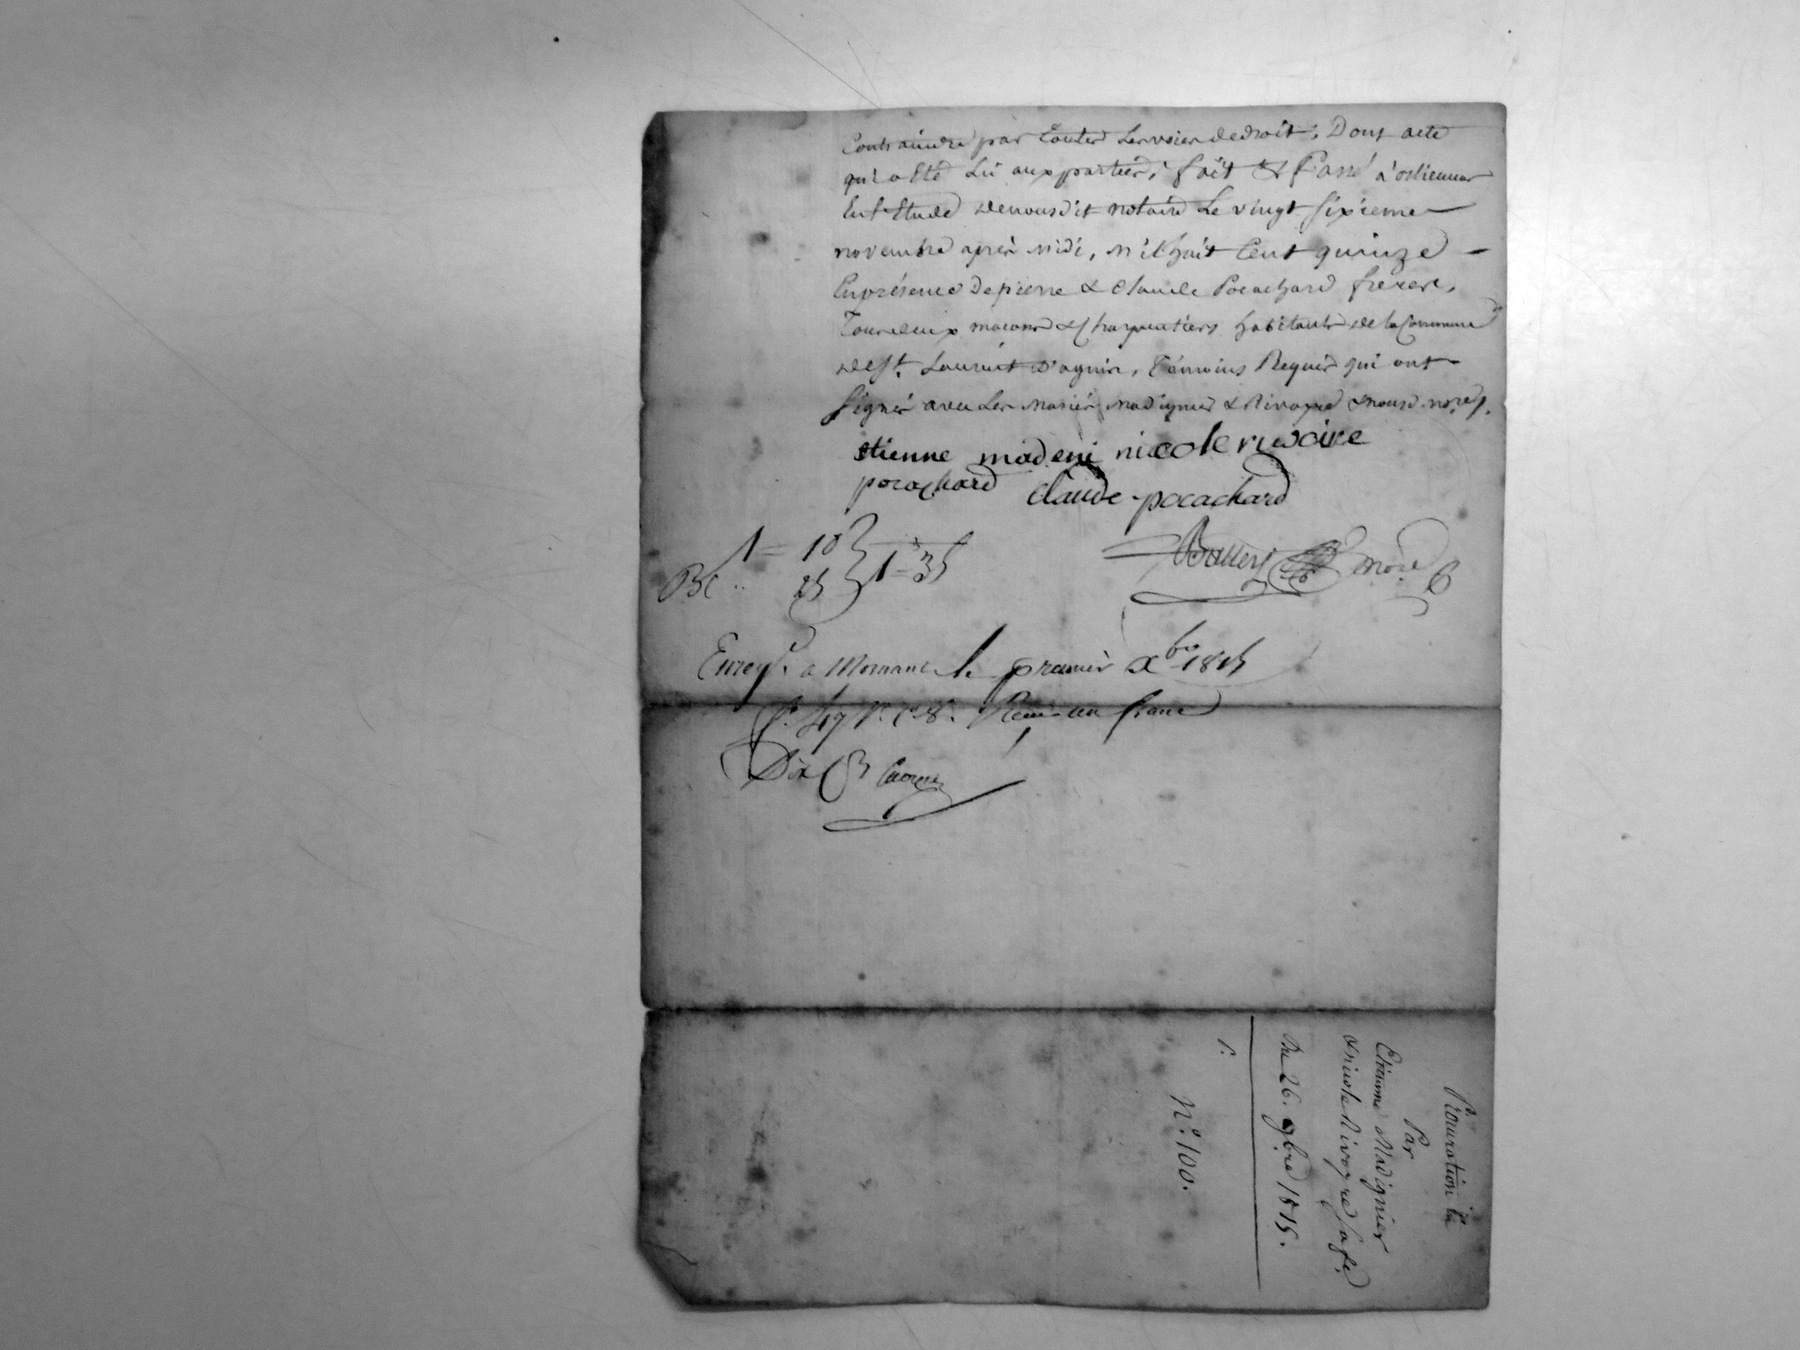 Contraindre par toutes Les voies de droit; Dont acte
qui a Eté Lu aux parties, fait & Passé à orlienas
En l'Etude de nous dit notaire Le vingt sixieme
novembre après midi, mil huit Cent quinze
En présence de pierre & Claude Pocachard freres,
Tous deux maçons & Charpentiers habitants de la Commune
de St. Laurent D'agnin, Témoins Requis qui ont
signés avec Les mariés madignier & Rivoyre & nous nore.
etienne madeni nicole rivoire
pocachard Claude pocachard
1 = 10 } 1 = 35
25
nore
Enregt. a Mornant le premier Xbre 1815
fo. 47 Vo. Co. 8. Recu un franc
Dix Cmes
Procuration
Par
Etienne Madignier
& nicole Rivoyre sa fe.
Du 26. 9bre 1815.
No. 100.